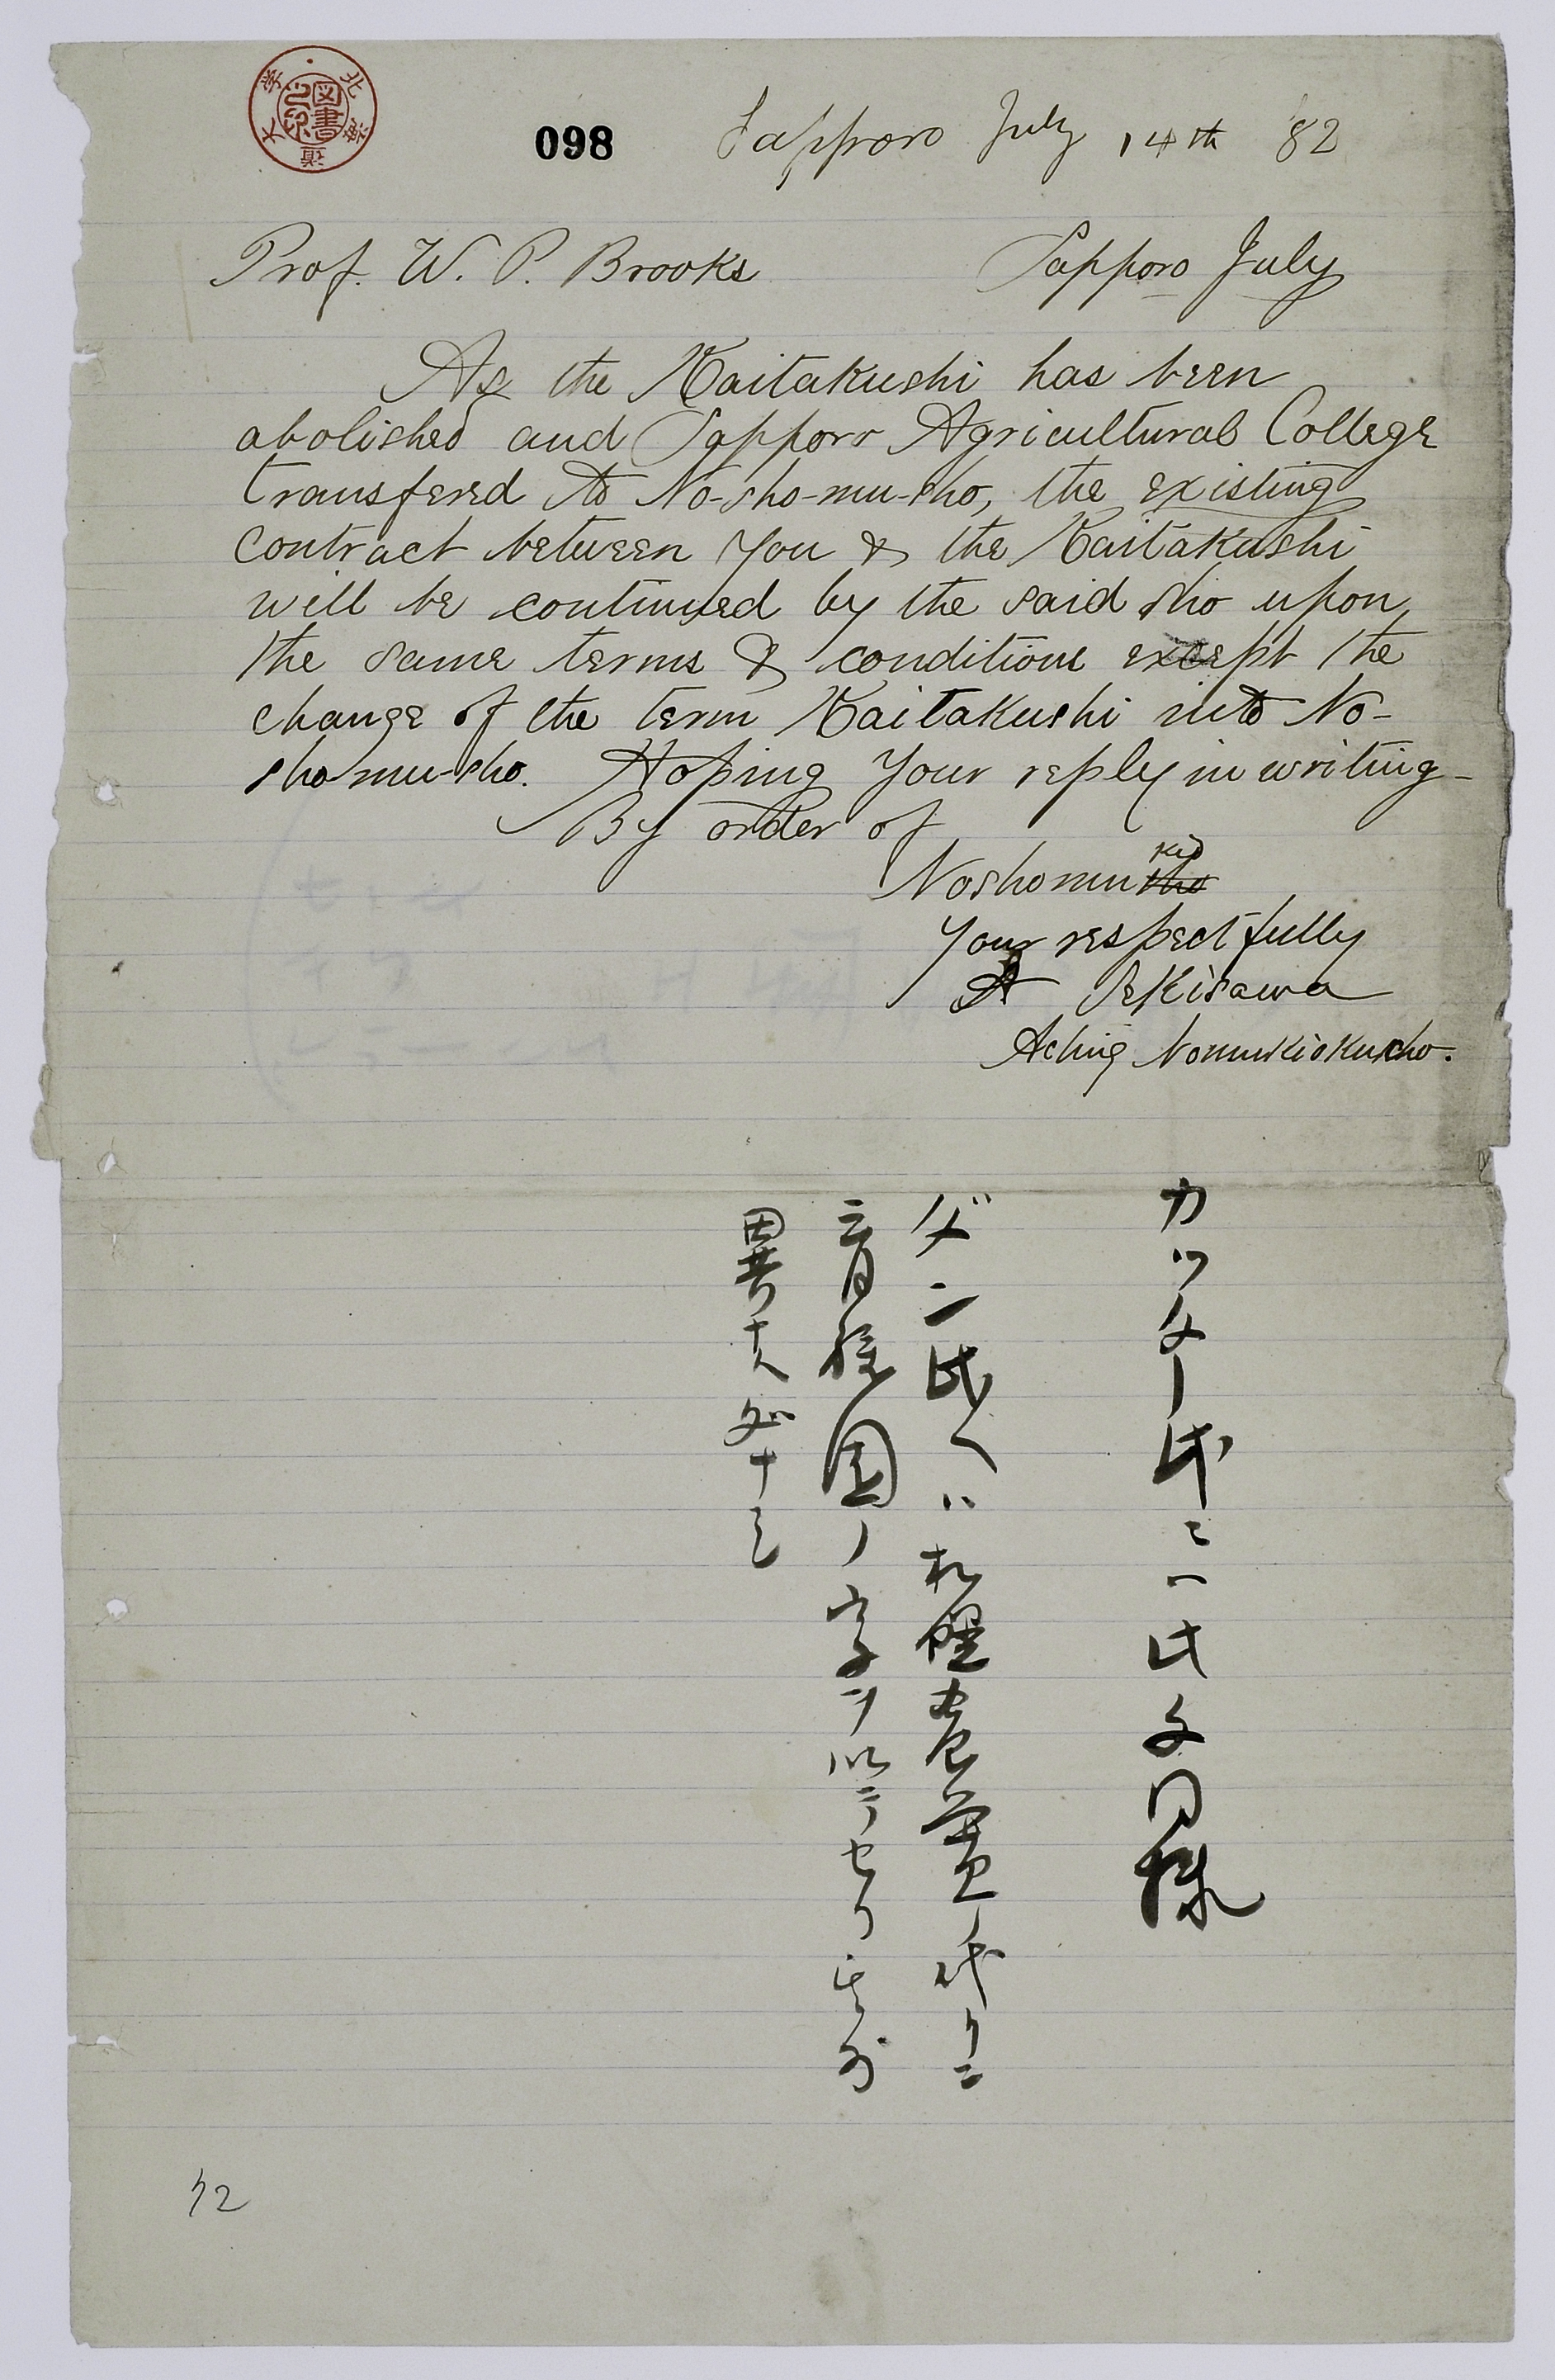 北海道大学
図書之印
098
Sapporo July 14th '82
Prof. W. P. Brooks Sapporo July
As the Kaitakushi has been
abolished and Sapporo Agricultural College
transfered to No-sho-mu-sho, the existing
contract between you & the Kaitakushi
will be continued by the said sho upon
the same terms & conditions except the
change of the term Kaitakushi into No-
sho-mu-sho. Hoping your reply in writing-
By order of
Noshomu sho kio
Your respectfully
A Sekisawa
Acting Nomukiokucho.
カツター氏ニハ此文同様
ダン氏ヘハ札幌農黌ノ代リニ
育種園ノ字ヲ以テセリ其外
異ナルナシ
72